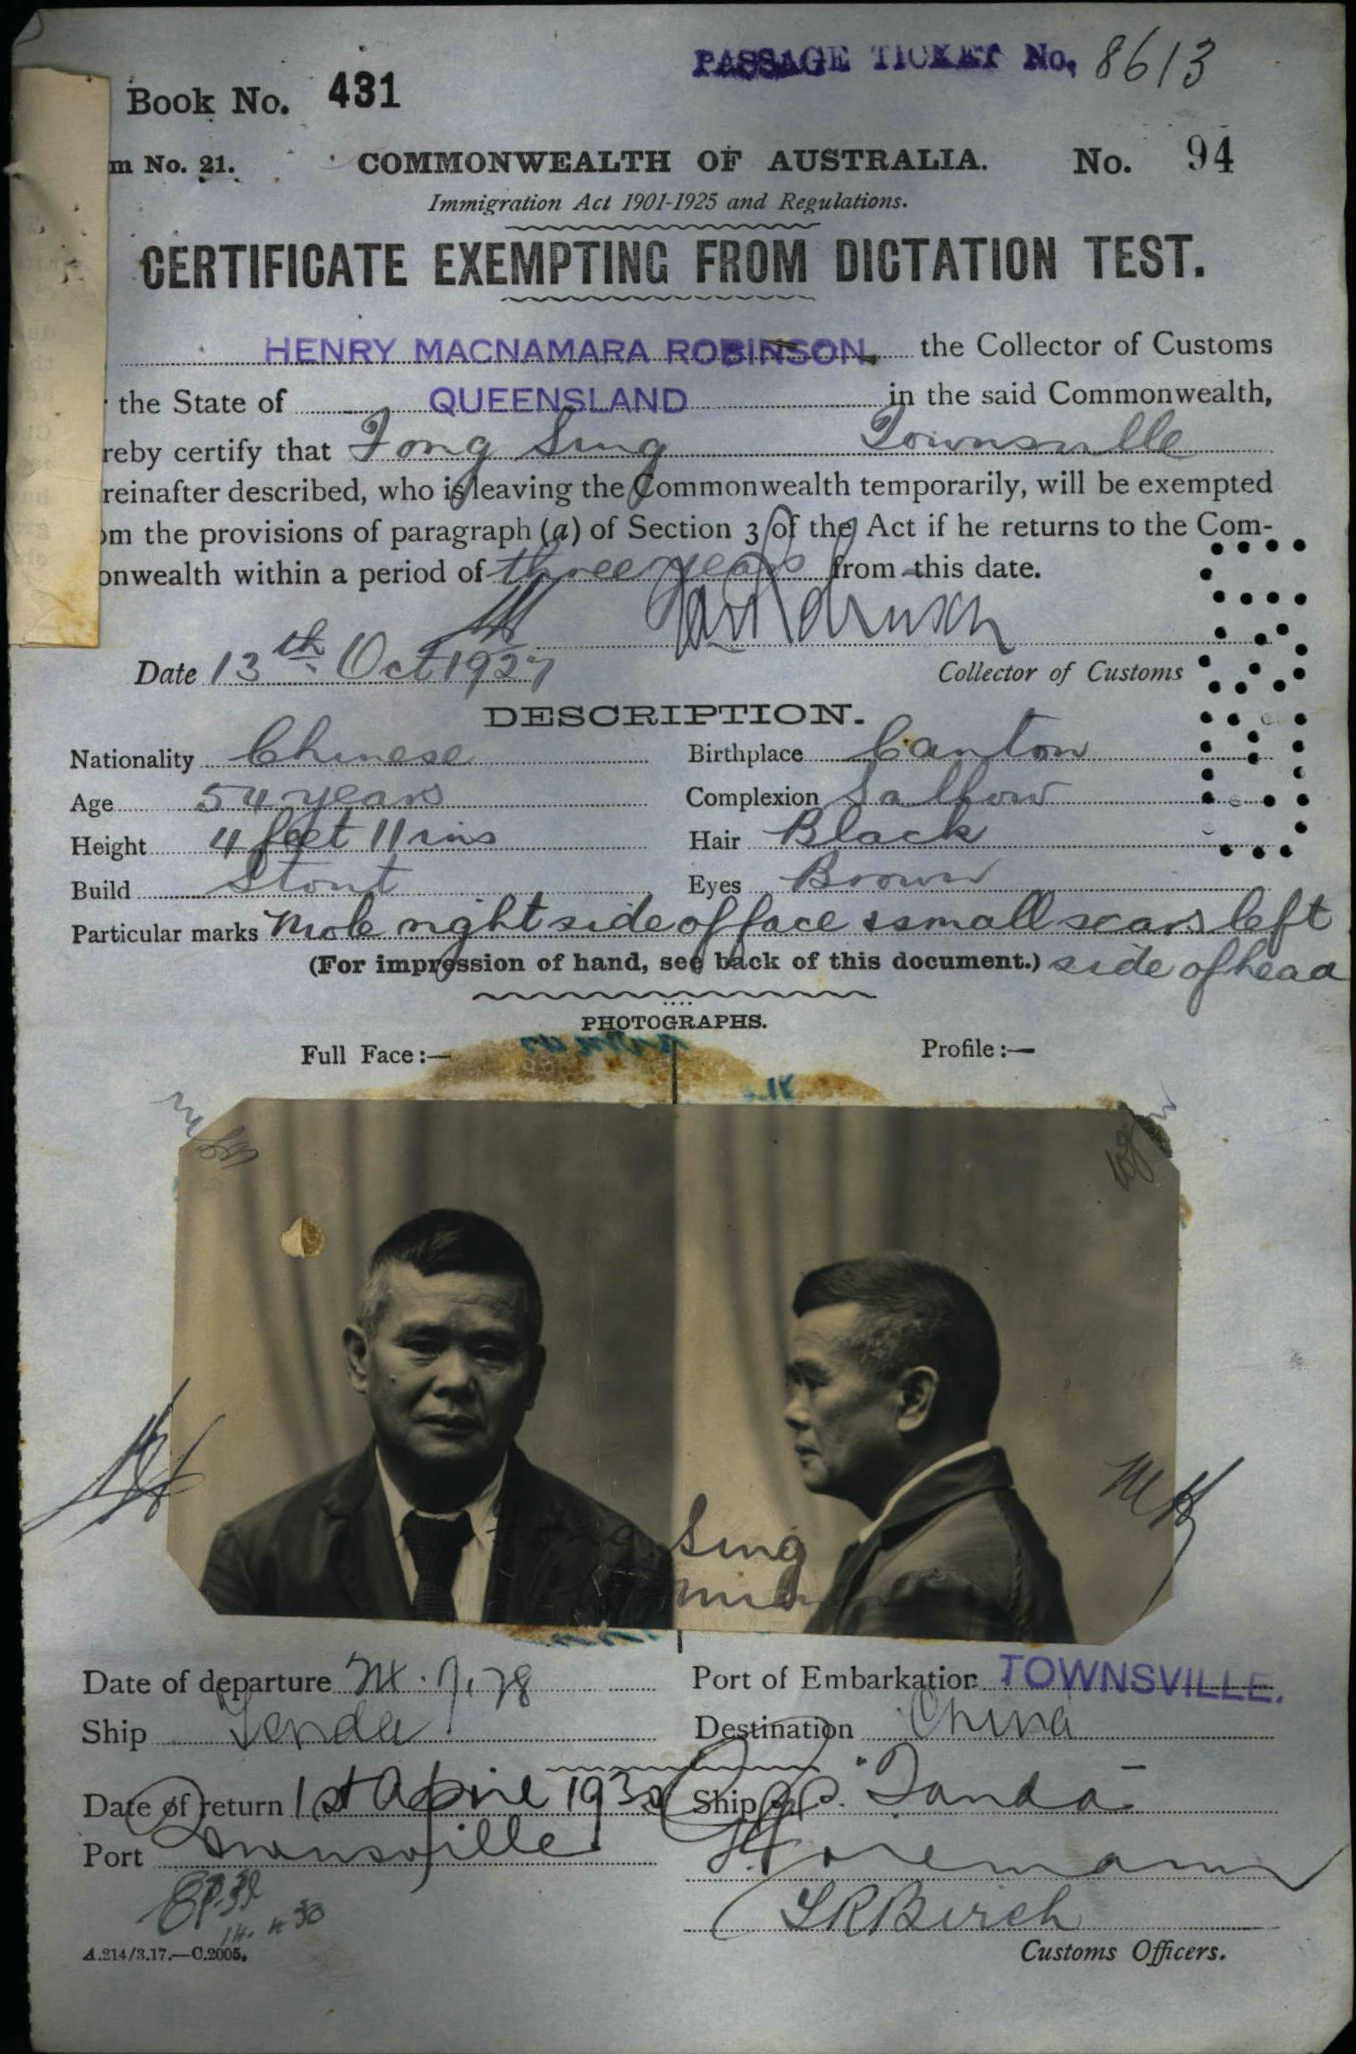 PASSAGE TICKET No. 8613
Book No. 431
m No. 21. COMMONWEALTH OF AUSTRALIA. No. 94
Immigration Act 1901-1925 and Regulations.
CERTIFICATE EXEMPTING FROM DICTATION TEST.
HENRY MACNAMARA ROBINSON, the Collector of Customs
the State of QUEENSLAND in the said Commonwealth,
reby certify that Fong Sing Townsville
reinafter described, who is leaving the Commonwealth temporarily, will be exempted
om the provisions of paragraph (a) of Section 3 of the Act if he returns to the Com-
onwealth within a period of three years from this date.
Date 13th Oct 1927 Collector of Customs
DESCRIPTION.
Nationality Chinese Birthplace Canton
Age 54 years Complexion Sallow
Height 4 feet 11 ins Hair Black
Build Stout Eyes Brown
Particular marks Mole right side of face & small scars left
(For impression of hand, see back of this document.) side of head
PHOTOGRAPHS.
Full Face:— Profile:—
Sing
Date of departure Port of Embarkation TOWNSVILLE.
Ship Tanda Destination China
Date of return 1st April 1930 Ship S.S. "Tanda"
Port Townsville
14.4.30 SRBirch
A.214/3.17.—C.2005. Customs Officers.